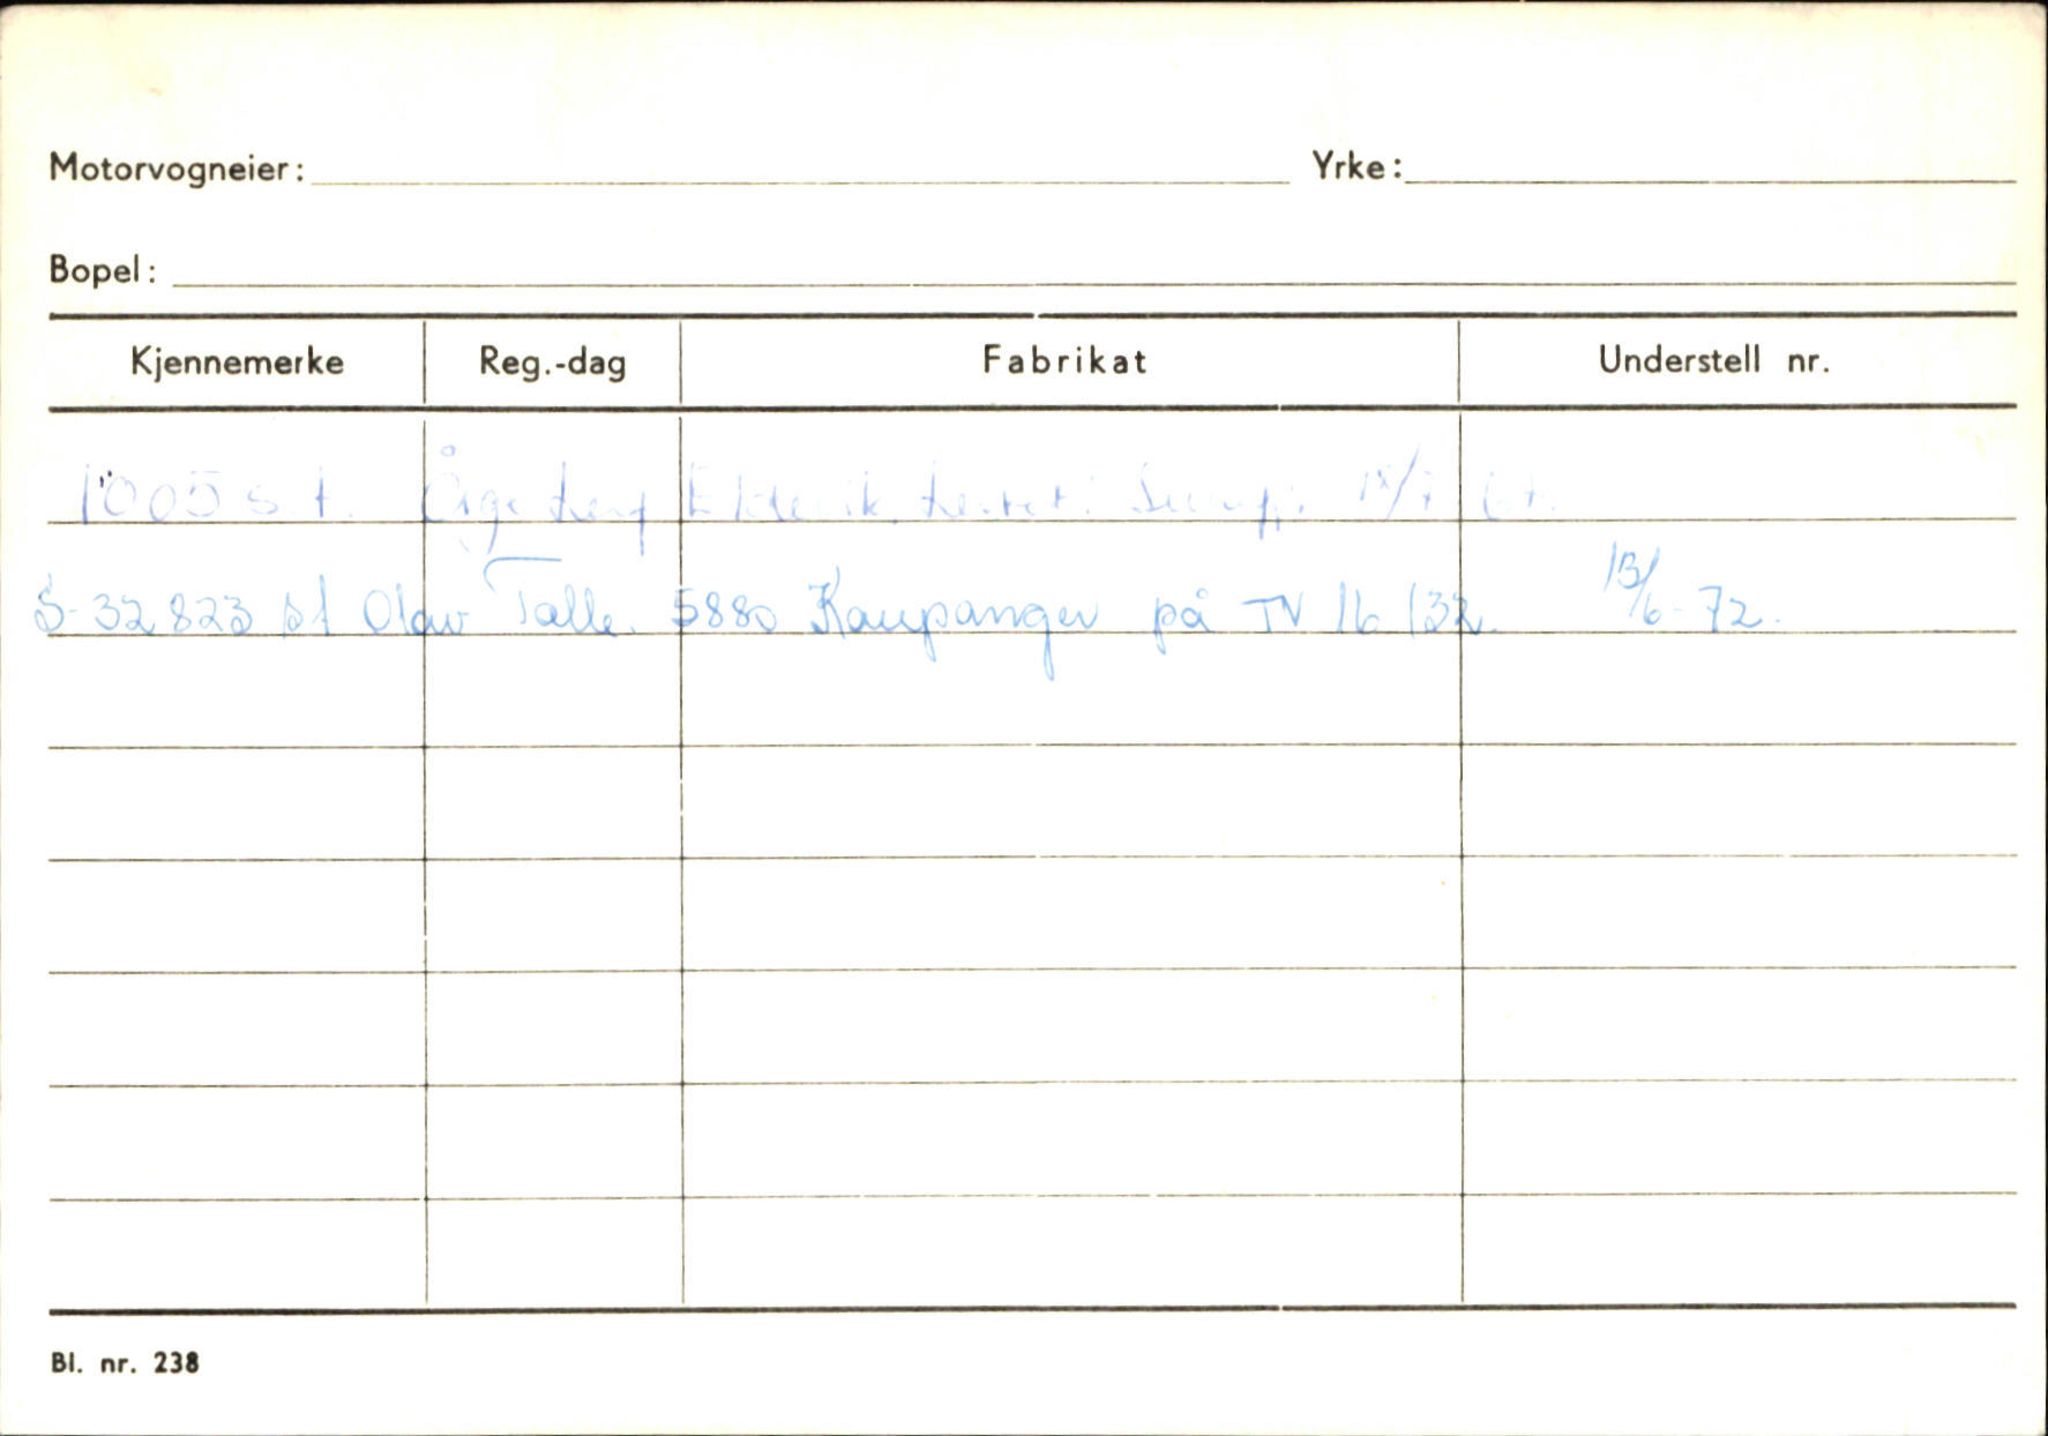 Motorvogneier: Yrke:
Bopel:
Kjennemerke Reg.-dag Fabrikat Understell nr.
1005 s.t. Åge
S-32823 st Olav Talle. 5880 Kaupanger på TV 16132. 13/6-72.
Bl. nr. 238